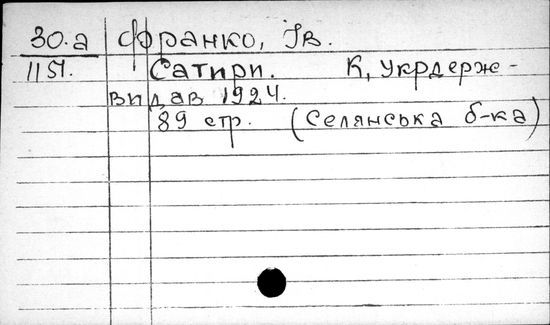 30.а Франко, Ів.
1151. Сатири. К, Укрдерж-
видав 1924.
89 стр. (Селянська б-ка)